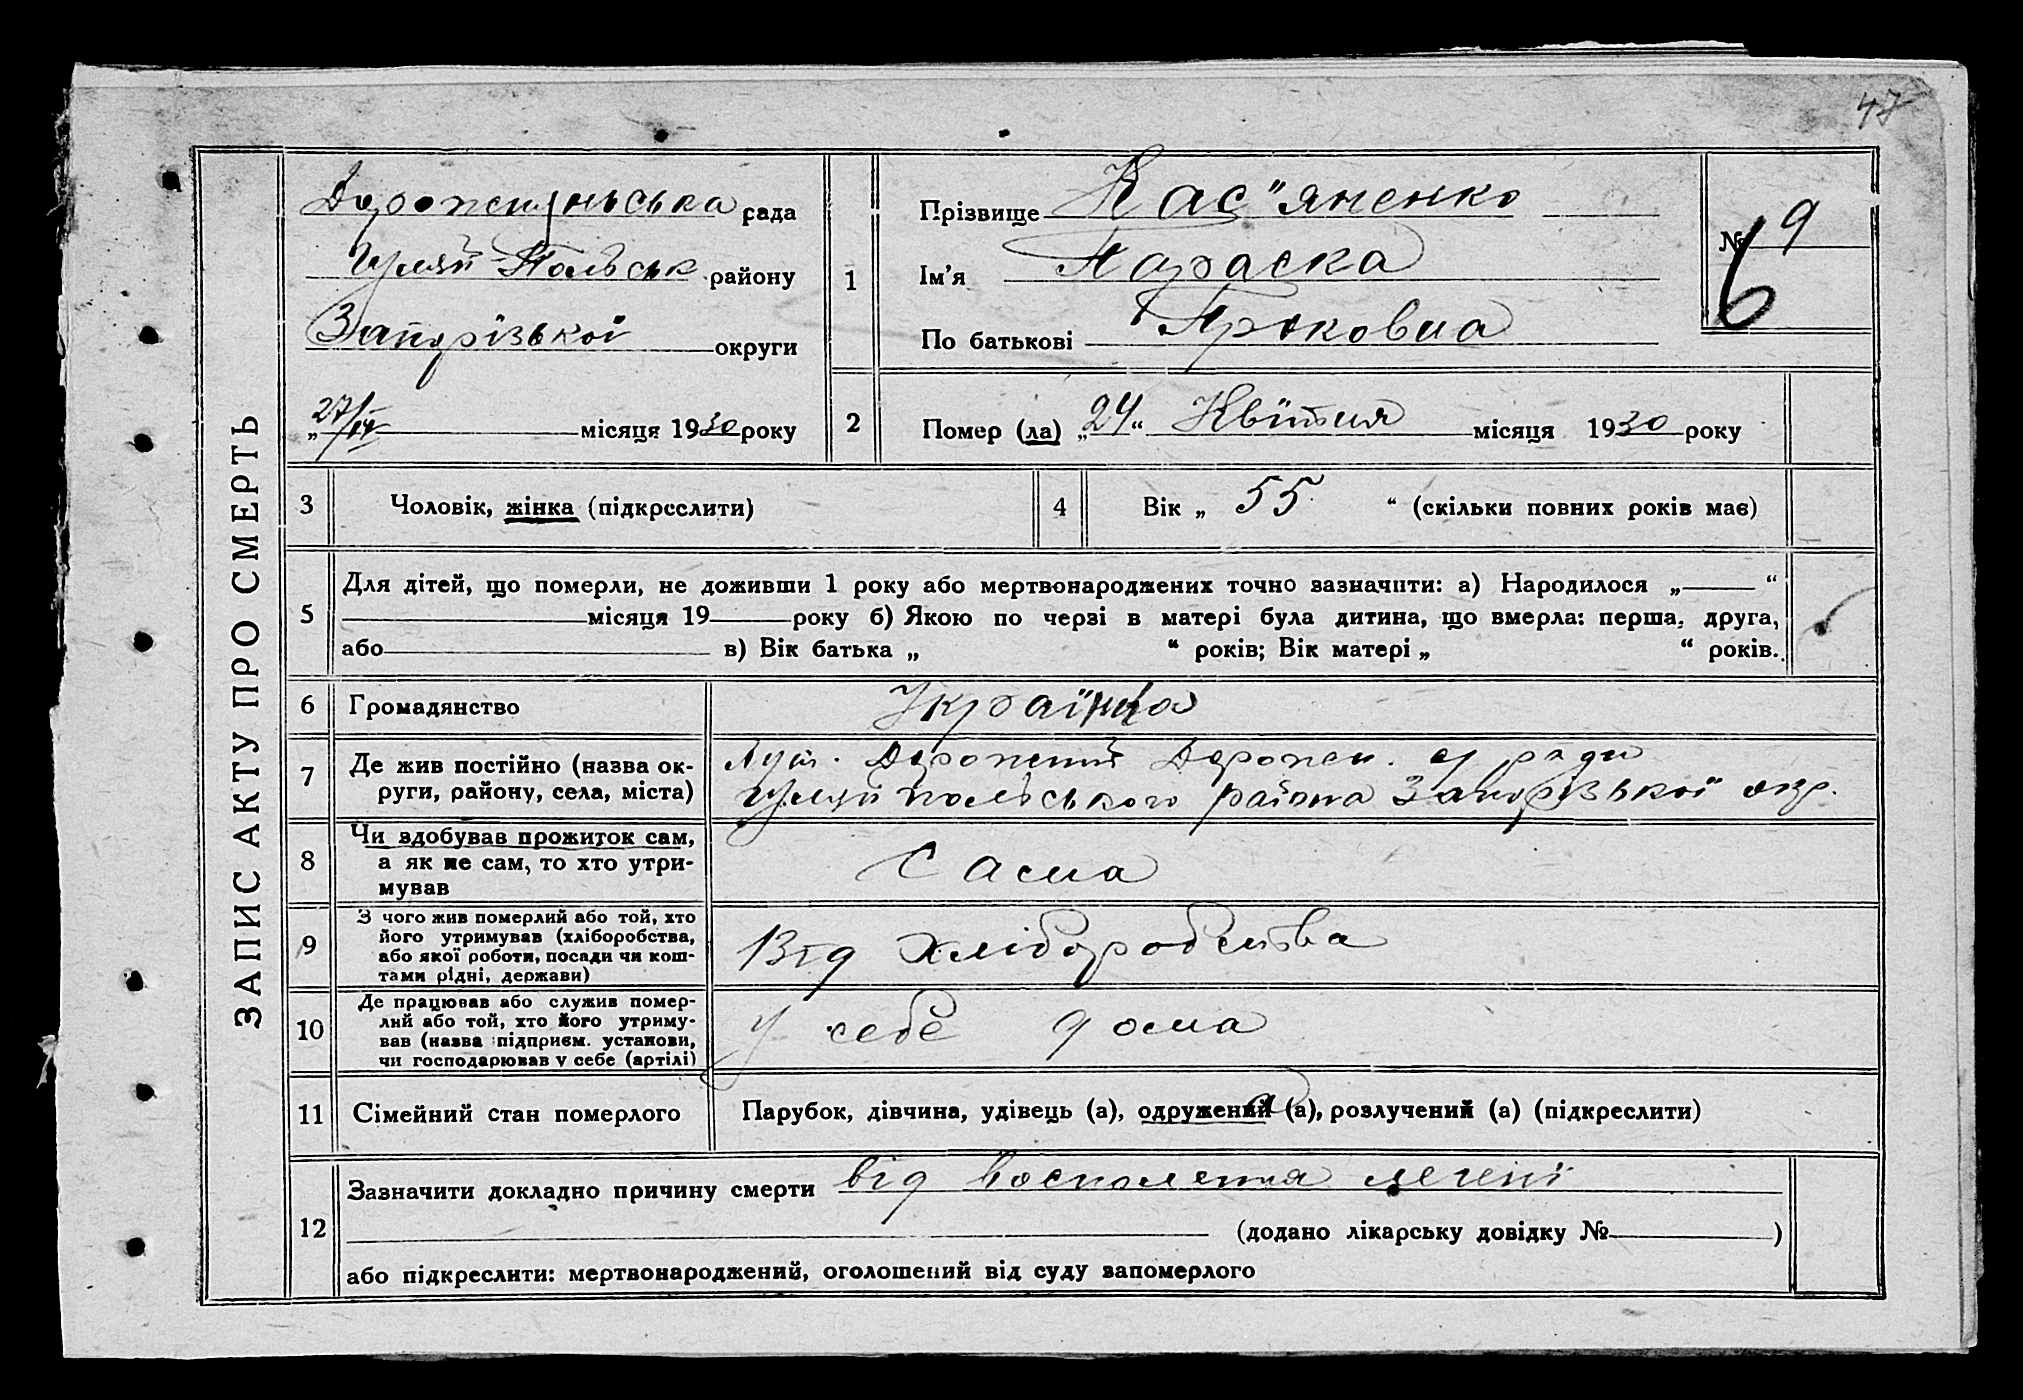 47
ЗАПИС АКТУ ПРО СМЕРТЬ
Дорожнянська рада
Гуляй-Польськ. району
Запорізької округи
„27/IV місяця 1930 року
1
Прізвище Кас"яненко
Ім'я Параска
По батькові
№ 9
6
2
Помер (ла) „24“ Квітня місяця 1930 року
3 Чоловік, жінка (підкреслити)
4 Вік „ 55 “ (скільки повних років має)
5
Для дітей, що померли, не доживши 1 року або мертвонароджених точно зазначити: а) Народилося „ “
місяця 19 року б) Якою по черзі в матері була дитина, що вмерла: перша, друга,
або в) Вік батька „ “ років; Вік матері „ “ років.
6 Громадянство Українка
7 Де жив постійно (назва ок-
руги, району, села, міста)
Дорожн. ради
Гуляйпольського района Запорізької окр.
8 Чи здобував прожиток сам,
а як не сам, то хто утри-
мував
Сама
9 З чого жив померлий або той, хто
його утримував (хліборобства,
або якої роботи, посади чи кош-
тами рідні, держави)
Від хліборобства
10 Де працював або служив помер-
лий або той, хто його утриму-
вав (назва підприєм. установи,
чи господарював у себе (артілі)
у себе дома
11 Сімейний стан померлого
Парубок, дівчина, удівець (а), одружений (а), розлучений (а) (підкреслити)
12
Зазначити докладно причину смерти від воспаления легені
(додано лікарську довідку № )
або підкреслити: мертвонароджений, оголошений від суду запомерлого